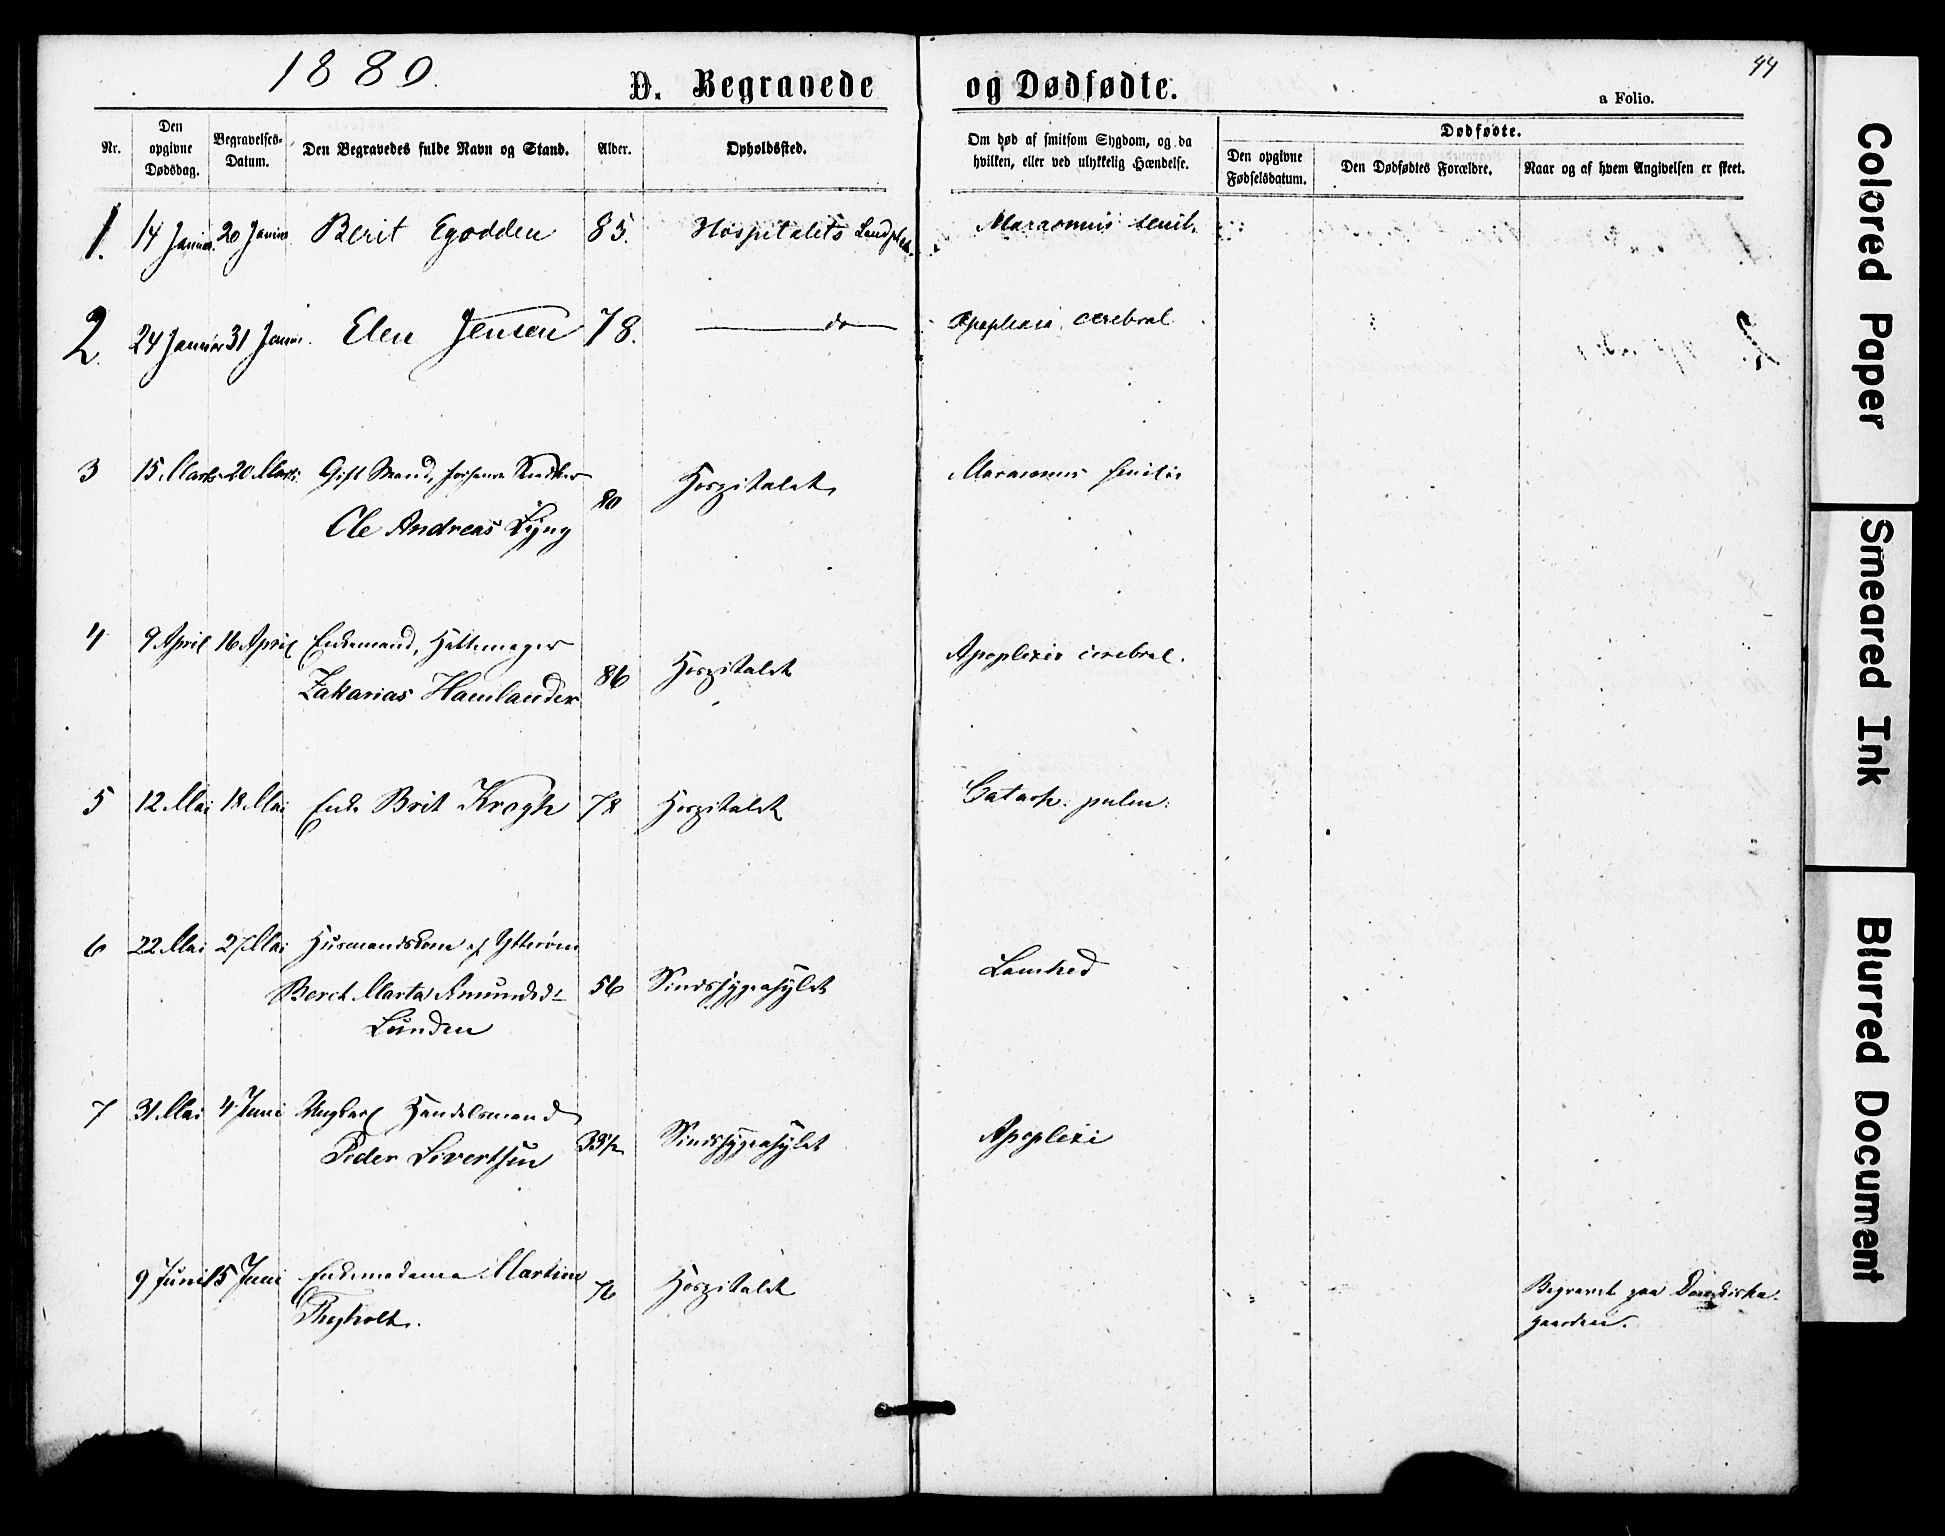 1880.
D. Begravede og Dødfødte.
44
a Folio.
Nr.
Den opgivne Dødsdag.
Begravelses-Datum.
Den Begravedes fulde Navn og Stand.
Alder.
Opholdssted.
Om død af smitsom Sygdom, og da hvilken, eller ved ulykkelig Hændelse.
Dødfødte.
Den opgivne Fødselsdatum.
Den Dødfødtes Forældre.
Naar og af hvem Angivelsen er skeet.
1. 14 Januar 20 Januar Berit Egodden 85. Hospitalets Marasmus senil.
2. 24 Januar 31 Januar Elen Jensen 78. do Apoplexia cerebral
3 15 Marts 20 Marts Gift Mand,
Ole Andreas Lyng 80 Hospitalet Marasmus senilis
4 9 April 16 April Enkemand, Hattemager
Zakarias Hamlander 86 Hospitalet Apoplexia cerebral.
5 12 Mai 18 Mai Enke Brit Krogh 78 Hospitalet Catarh. pulm:
6 22 Mai 27 Mai Husmandskone af Ytterøen
Beret Marta Amundsd: 56 Sindssygeasylet Lamhed
Lunden
7 31 Mai 4 Juni Ungkarl Handelsmand
Peder Sivertsen 33½ Sindssygeasylet Apoplexi
9 Juni 15 Juni Enkemadame Martine 76 Hospitalet Begravet paa Domkirke-
Thyholt. gaarden.
Colored Paper
Smeared Ink
Blurred Document